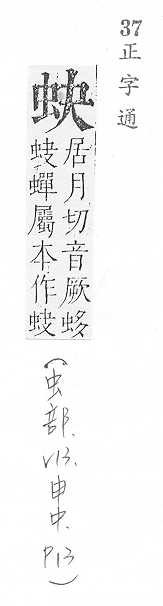 37
正字通
蚗
居月切音厥蛥
蚑蟬屬本作蚑
(虫部.
V13.
申中.
P13)